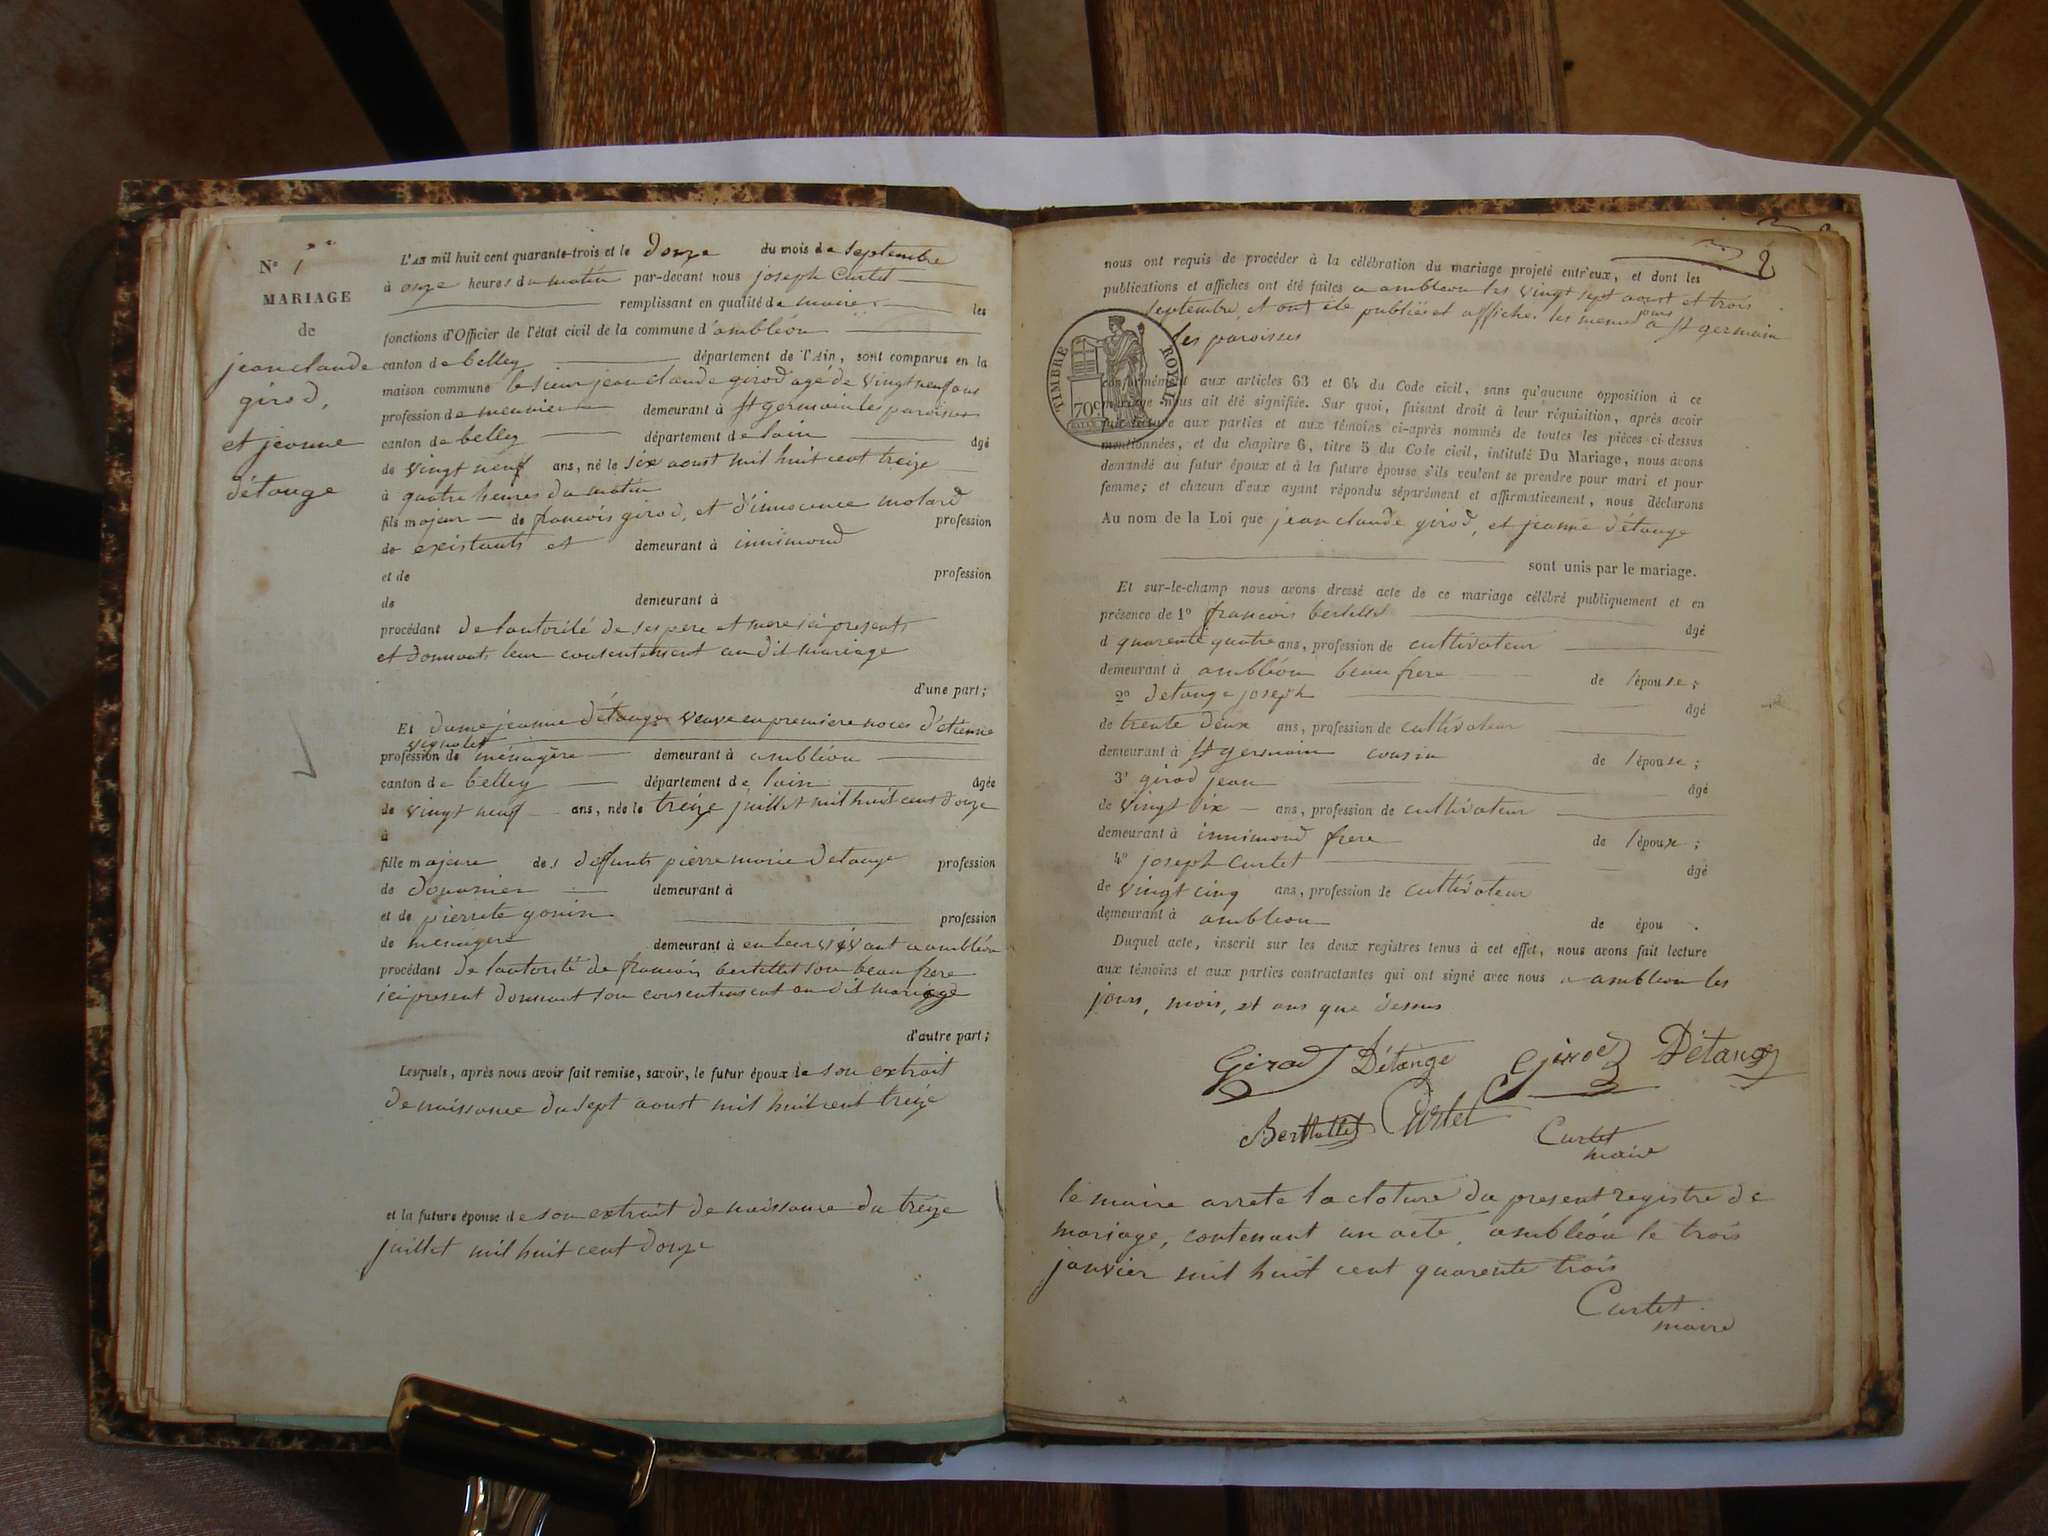 N° 1
MARIAGE
de
jean claude
girod,
et jeanne
détange
L'AN mil huit cent quarante-trois et le douze du mois de septembre
à onze heures du matin par-devant nous joseph Curtet
remplissant en qualité de maire les
fonctions d'Officier de l'état civil de la commune d'ambléon
canton de belley département de l'Ain, sont comparus en la
maison commune le sieur jean claude girod agé de vingt neuf ans
profession de meunier demeurant à st germain les paroisses
canton de belley département de lain âgé
de vingt neuf ans, né le six aoust mil huit cent treize
à quatre heures du matin
fils majeur de francois girod, et d'innocence molard profession
de existants et demeurant à innimond
et de profession
de demeurant à
procédant de lautorité de ses pere et mere ici presents
et donnants leur consentement au dit mariage
d'une part;
Et dame jeanne détange veuve en premiere noces d'étienne
profession de ménagère demeurant à ambléon
canton de belley département de lain âgée
de vingt neuf ans, née le treize juillet mil huit cent douze
à
fille majeure des deffunts pierre marie detange profession
de douanier demeurant à
et de pierrete gonin profession
de menagere demeurant à en leur vivant a ambléon
procédant de lautorité de francois bertellet son beau frere
ici present donnant son consentement au dit mariage
d'autre part;
Lesquels, après nous avoir fait remise, savoir, le futur époux de son extrait
de naissance du sept aoust mil huit cent treize
et la future épouse de son extrait de naissance du treize
juillet mil huit cent douze
2
nous ont requis de procéder à la célébration du mariage projeté entr'eux, et dont les
publications et affiches ont été faites a ambleon les vingt sept aoust et trois
septembre, et ont été publiée et affiche les meme jours a st germain
les paroisses
TIMBRE ROYAL
70c
conformément aux articles 63 et 64 du Code civil, sans qu'aucune opposition à ce
mariage nous ait été signifiée. Sur quoi, faisant droit à leur réquisition, après avoir
fait lecture aux parties et aux témoins ci-après nommés de toutes les pièces ci-dessus
mentionnées, et du chapitre 6, titre 5 du Code civil, intitulé Du Mariage, nous avons
demandé au futur époux et à la future épouse s'ils veulent se prendre pour mari et pour
femme; et chacun d'eux ayant répondu séparément et affirmativement, nous déclarons
Au nom de la Loi que jean claude girod, et jeanne détange
sont unis par le mariage.
Et sur-le-champ nous avons dressé acte de ce mariage célébré publiquement et en
présence de 1° francois bertellet âgé
d quarente quatre ans, profession de cultivateur
demeurant à ambléon beau frere de l'épouse;
2° detange joseph âgé
de trente deux ans, profession de cultivateur
demeurant à st germain cousin de l'épouse;
3° girod jean âgé
de vingt six ans, profession de cultivateur
demeurant à innimond frere de l'époux;
4° joseph curtet âgé
de vingt cinq ans, profession de cultivateur
demeurant à ambleon de épou .
Duquel acte, inscrit sur les deux registres tenus à cet effet, nous avons fait lecture
aux témoins et aux parties contractantes qui ont signé avec nous a ambleon les
jours, mois, et ans que dessus
Girod Détange Girod Détange
Berthellet Curtet Curtet
maire
le maire arrete la cloture du present registre de
mariage, contenant un acte, ambléon le trois
janvier mil huit cent quarente trois
Curtet
maire